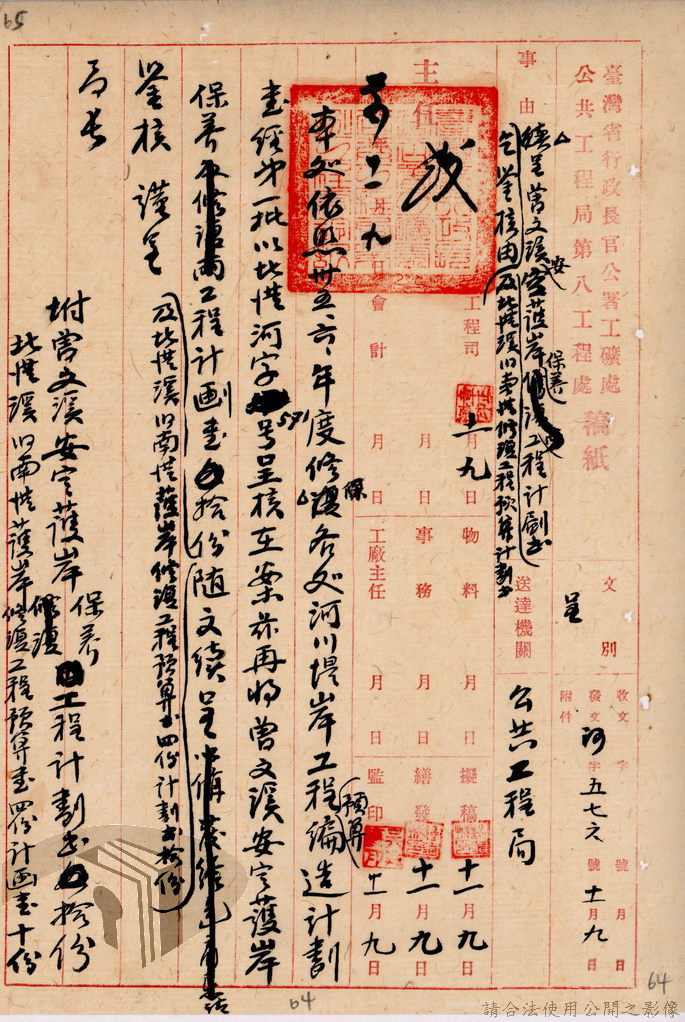 65
臺灣省行政長官公署工礦處
公共工程局第八工程處 稿紙
文別 呈
收文 字 號 月 日
發文 河字五七六號 十一月九日
附件
事由 續呈曾文溪安定護岸保養工程計劃書
乞鑒核由 及北港溪旧南港修復工程預算計劃書
送達機關 公共工程局
主任
工程司 十一月九日
物料 月 日
擬稿 十一月九日
事務 月 日
繕發 十一月九日
會計 月 日
工廠主任 月 日
監印 十一月九日
本處依照卅五、六、年度修復各處河川堤岸工程編造預算計劃
書經第一批以北港河字571號呈核在案茲再將曾文溪安定護岸
保養工程計画書拾份隨文續呈
及北港溪旧南港護岸修復工程預算書四份計劃書拾份
鑒核 謹呈
局長
坿曾文溪安定護岸保養工程計劃書拾份
北港溪旧南港護岸修復工程預算書四份計画書十份
64
64
請合法使用公開之影像